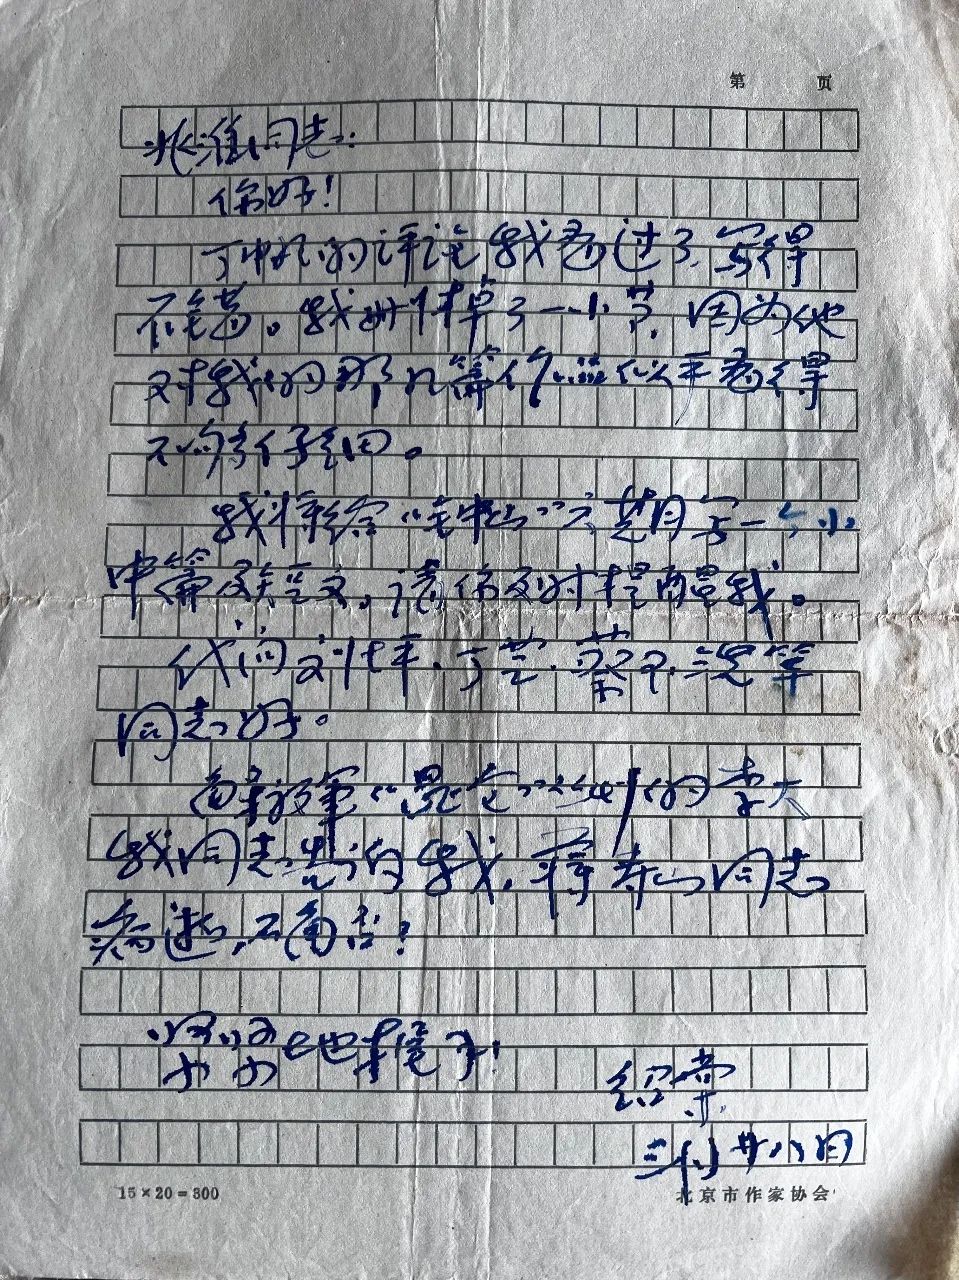 第 页
兆淮同志:
你好!
丁帆的评论我看过了,写得
不错。我删掉了一小节,因为他
对我的那几篇作品似乎看得
不够仔细。
我将给“钟山”六期写一个小
中篇及短文,请你及时提醒我。
代问刘坪、丁芒、蔡、沈等
同志好。
“昆仑”的李大
我同志告诉我,同志
病逝,不确否?
紧紧地握手!
绍棠
三月廿八日
15×20=300
北京市作家协会